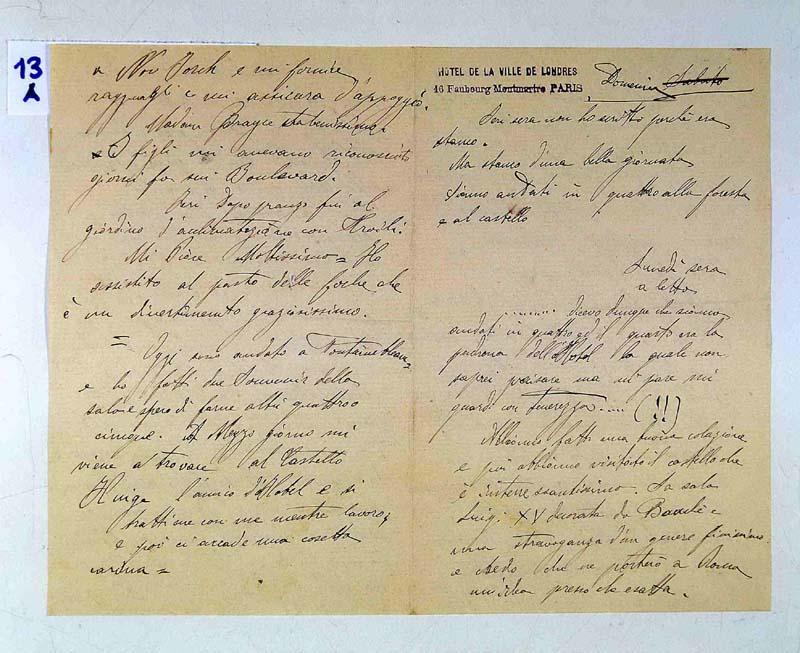 13
A
a Nov Jorck e mi fornire
ragguagli e mi assicura d'appoggio
Madama Brague stabenissimo
I figli mi avevano riconosciuto
giorni fa sui Boulevard.
Jeri Dopo pranzo fui al
giardino d'acclimatazione con
Mi Piace Moltissimo = Ho
assistito al pasto delle foche che
è un divertimento graziosissimo.
= Oggi sono andato a Fontainebleau =
e ho fatti due Souvenir della
sala e spero di farne altri quattro o
cinque. A Mezzo giorno mi
viene a trovare al Castello
l'amico d'Hotel e si
trattiene con me mentre lavoro,
e poi ci accade una cosetta
carina =
HOTEL DE LA VILLE DE LONDRES
16 Faubourg Montmartre PARIS,
Domenica Sabato
Jeri sera non ho scritto perchè era
stanco.
Ma stanco d'una bella giornata
siamo andati in quattro alla foresta
e al castello
Lunedì sera
a letto
......... dicevo dunque che siamo
andati in quattro ed il quarto era la
padrona dell'Hotel la quale non
saprei precisare ma mi pare mi
guardi con Tenerezza..... (!!)
Abbiamo fatti una buona colazione
e poi abbiamo visitato il castello che
è interressantissimo. La sala
Luigi XV decorata da Bouchè =
una stravaganza d'un genere finissimo
e credo che ne porterò a Roma
un'idea presso che esatta.